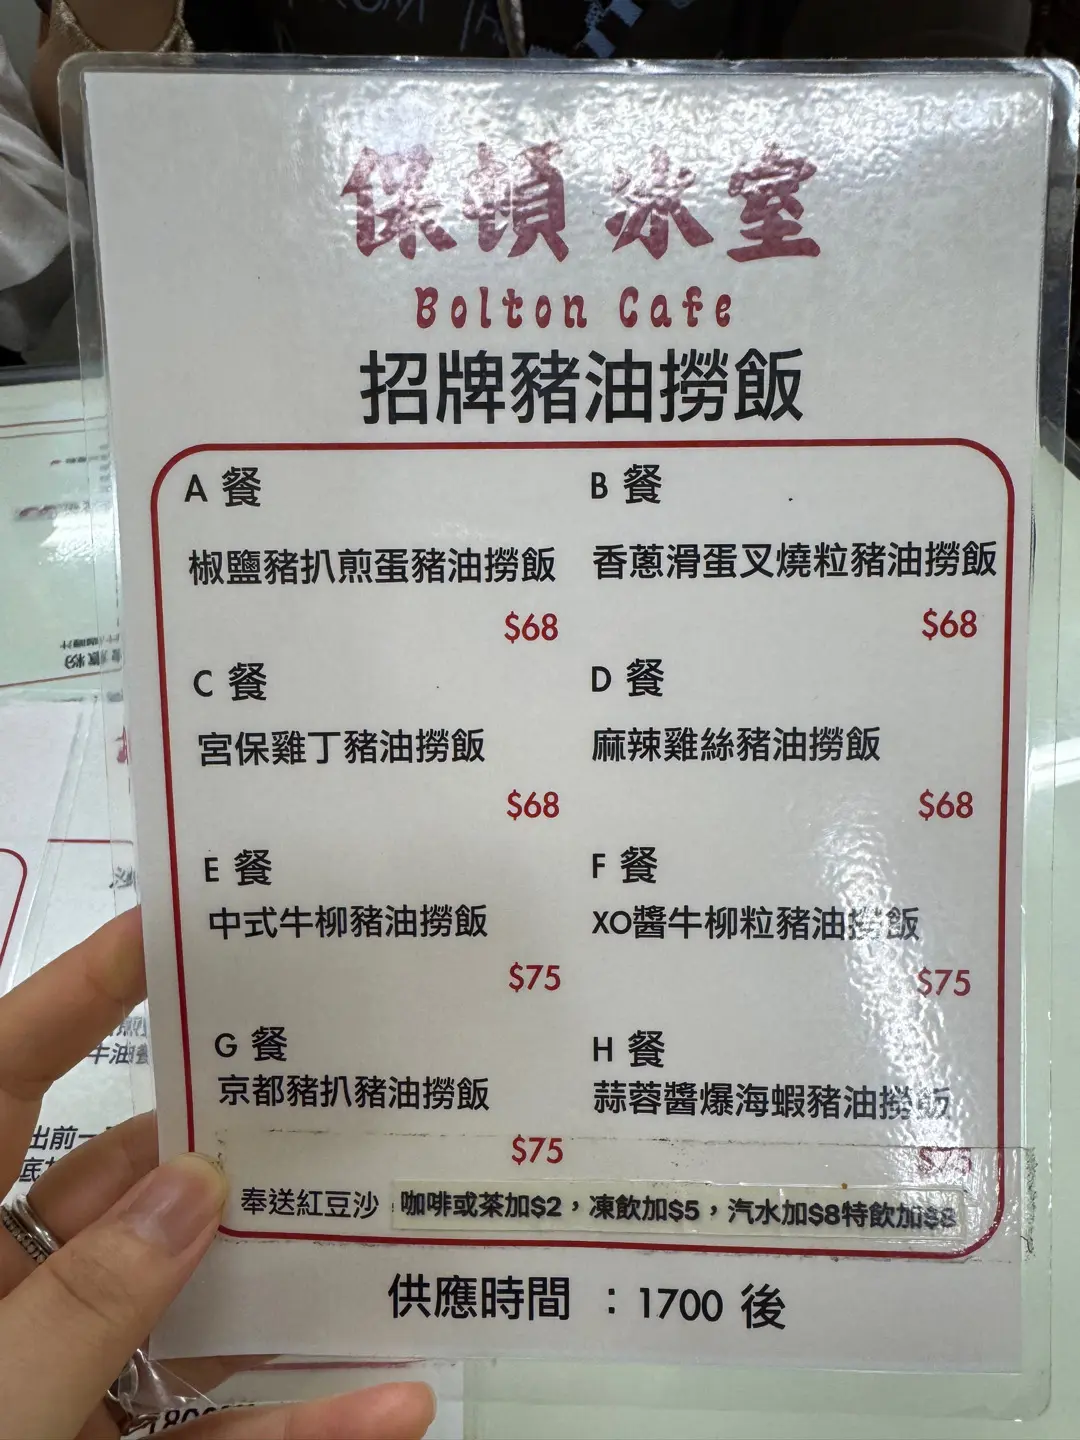 保頓冰室
Bolton Cafe
招牌豬油撈飯
A 餐
椒鹽豬扒煎蛋豬油撈飯
$68
B 餐
香蔥滑蛋叉燒粒豬油撈飯
$68
C 餐
宮保雞丁豬油撈飯
$68
D 餐
麻辣雞絲豬油撈飯
$68
E 餐
中式牛柳豬油撈飯
$75
F 餐
XO醬牛柳粒豬油撈飯
$75
G 餐
京都豬扒豬油撈飯
$75
H 餐
蒜蓉醬爆海蝦豬油撈飯
$75
奉送紅豆沙 咖啡或茶加$2，凍飲加$5，汽水加$8特飲加$8
供應時間 ：1700 後
出前一
牛油餐